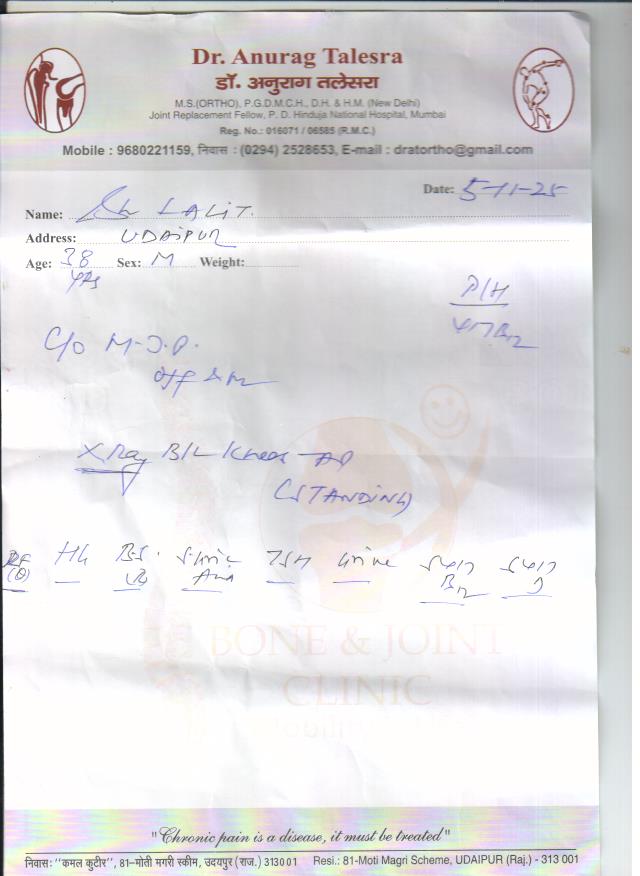 Dr. Anurag Talesra
डॉ. अनुराग तलेसरा
M.S.(ORTHO), P.G.D.M.C.H., D.H. & H.M. (New Delhi)
Joint Replacement Fellow, P. D. Hinduja National Hospital, Mumbai
Reg. No.: 016071 / 06585 (R.M.C.)
Mobile : 9680221159, निवास : (0294) 2528653, E-mail : dratortho@gmail.com
Date: 5-11-25
Name: LALIT.
Address: UDAIPUR
Age: 38 Sex: M Weight:
yrs
P/H
C/o M-J.P.
off &
X Ray B/L Knee AP
(STANDING)
Hb B-S. S-Uric TSH Urine
B12 D
BONE & JOINT
CLINIC
"Chronic pain is a disease, it must be treated"
निवासः "कमल कुटीर", 81-मोती मगरी स्कीम, उदयपुर (राज.) 313001 Resi.: 81-Moti Magri Scheme, UDAIPUR (Raj.) - 313 001